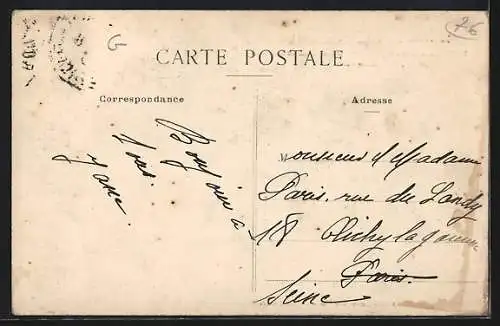 G
76
CARTE POSTALE
Correspondance
Adresse
Bonjour à
tous.
Monsieur & Madame
Paris. rue du Landy
118 Clichy la garenne
Paris.
Seine